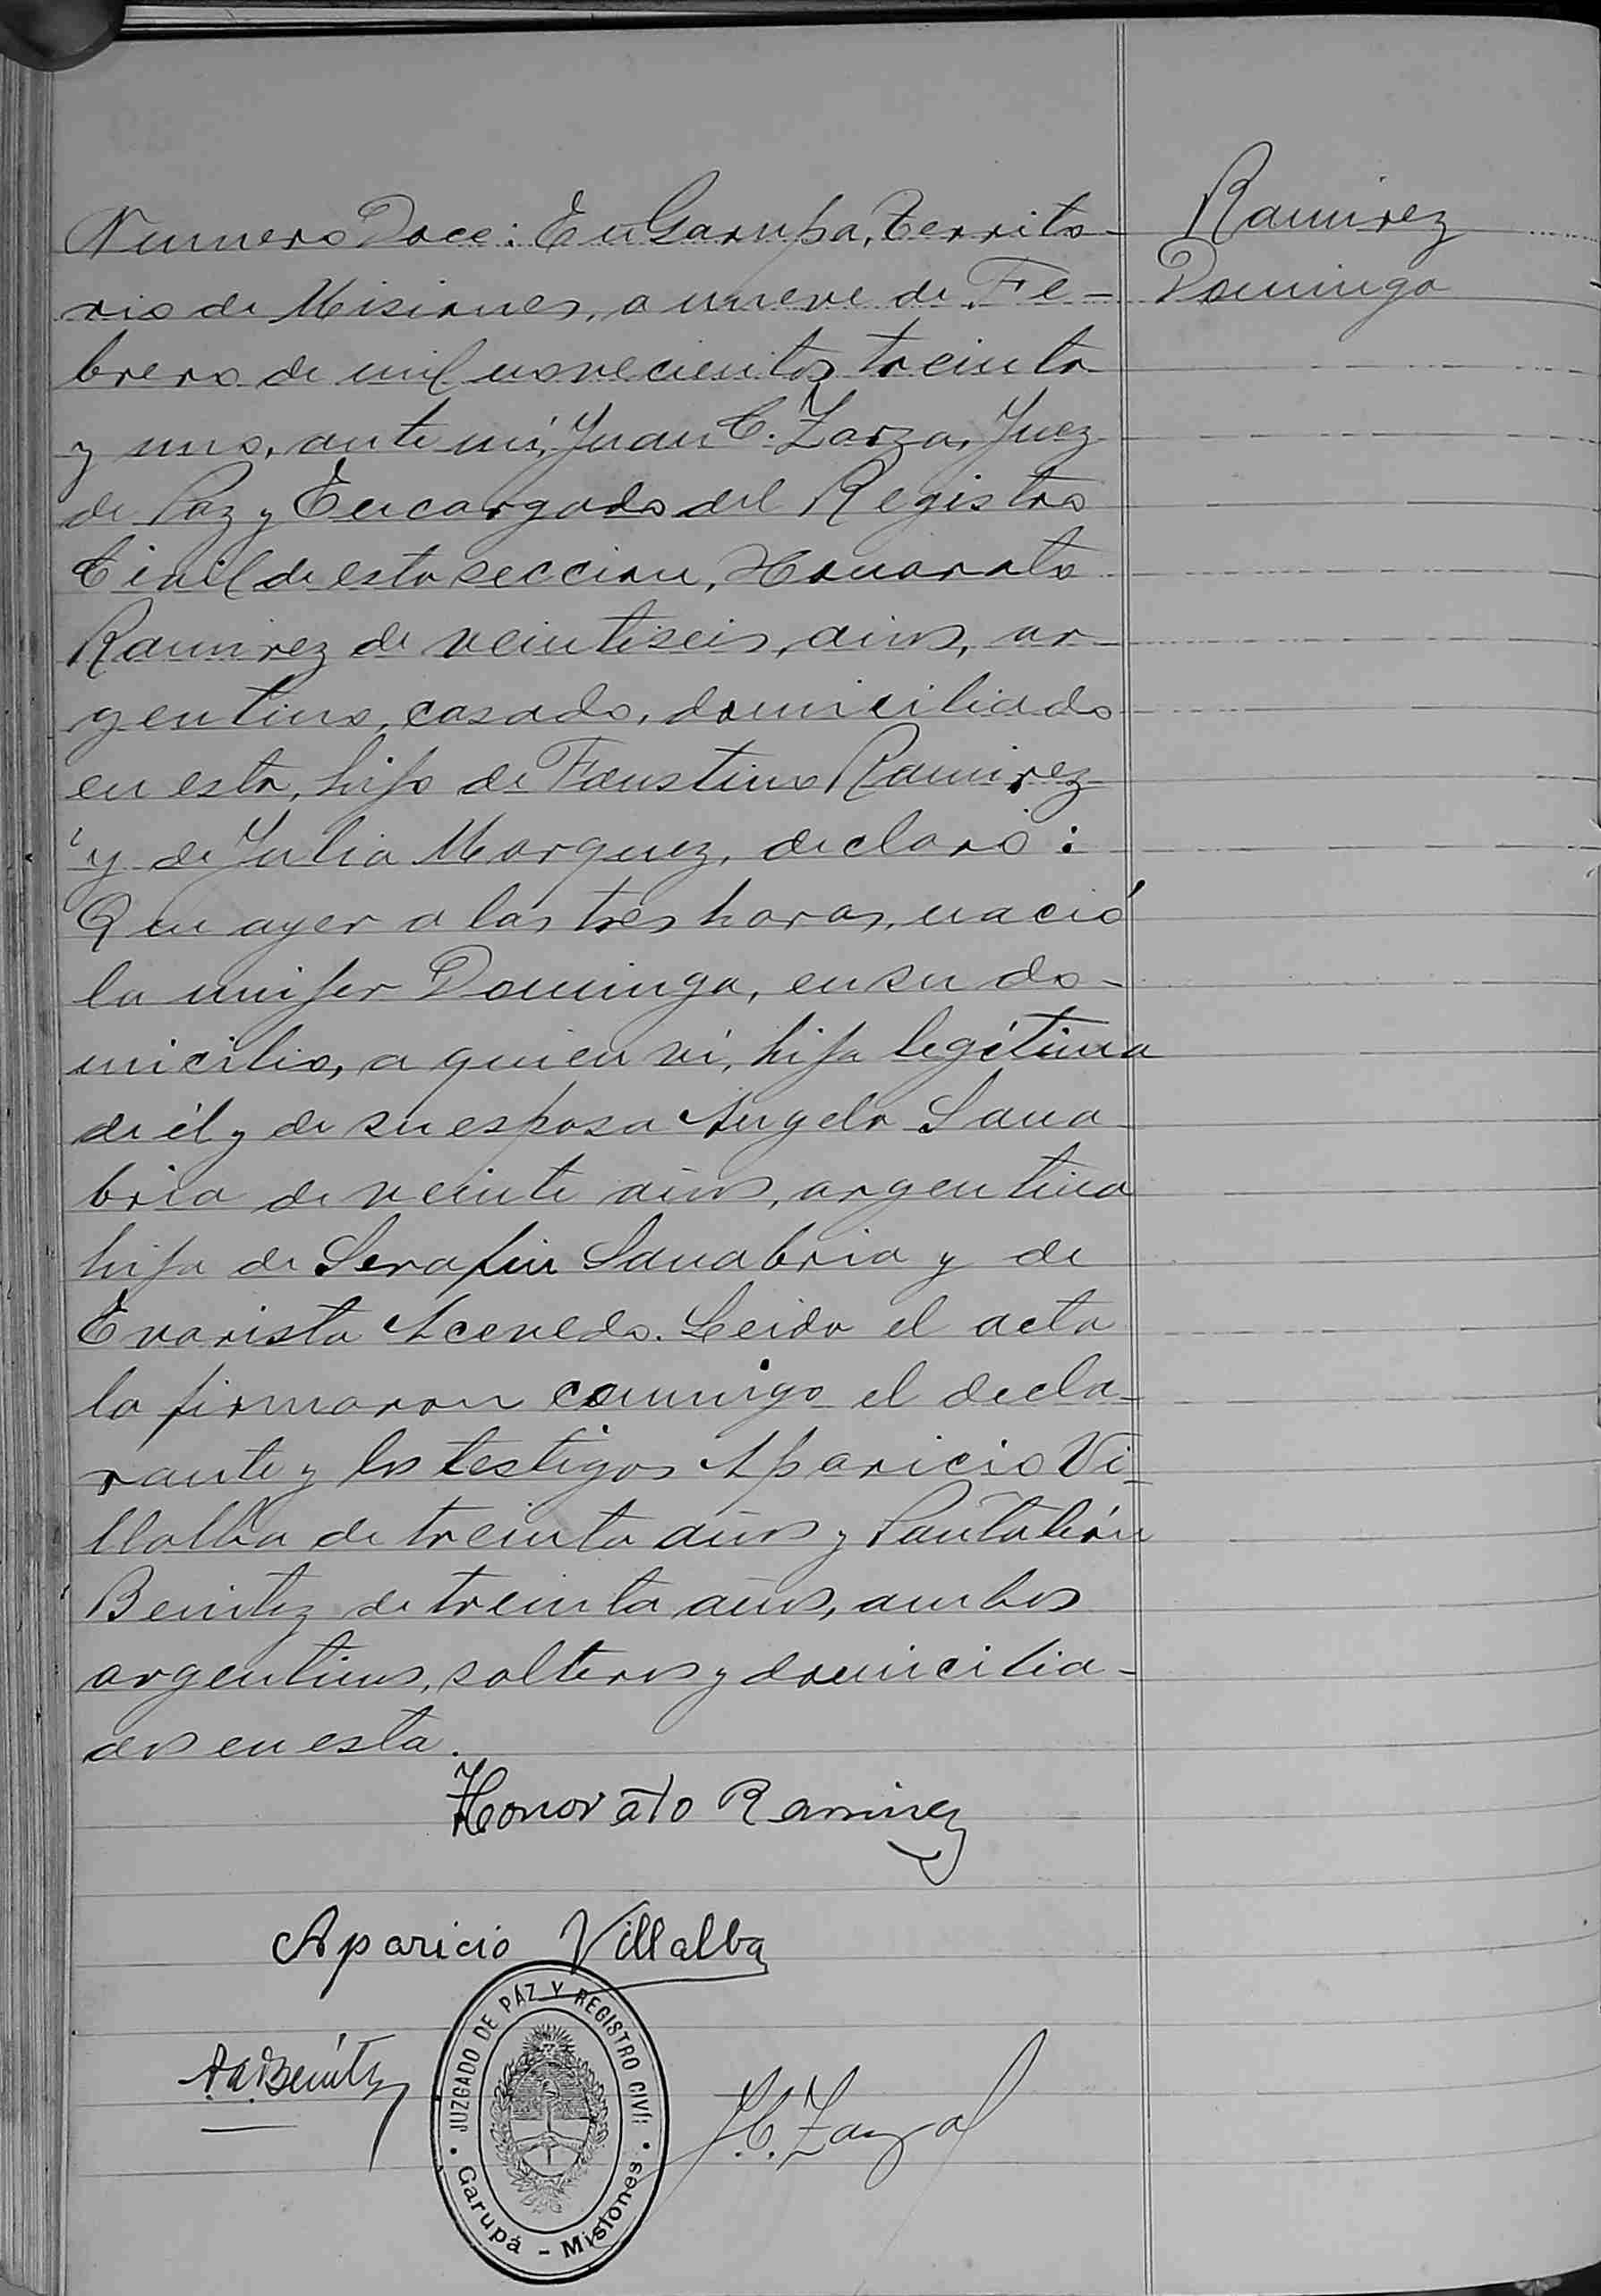 Ramirez
Dominga
Numero Doce: En Garupa, Territo-
rio de Misiones, a nueve de Fe-
brero de mil novecientos treinta
y uno, ante mi, Juan C. Zarza, Juez
de Paz y Encargado del Registro
Civil de esta seccion, Honorato
Ramirez de veintiseis años, ar-
gentino, casado, domiciliado
en esta, hijo de Faustino Ramirez
y de Julia Marquez, declaró:
Que ayer a las tres horas, nació
la mujer Dominga, en su do-
micilio, a quien ví, hija legítima
de él y de su esposa Angela Sana-
bria de veinte años, argentina
hija de Serafin Sanabria y de
Evarista Acevedo. Leida el acta
la firmaron conmigo el decla-
rante y los testigos Aparicio Vi-
llalba de treinta años y Pantaleón
Benitez de treinta años, ambos
argentinos, solteros y domicilia-
dos en esta.
Honorato Ramirez
Aparicio Villalba
Benitz
J. C. Zarza
JUZGADO DE PAZ Y REGISTRO CIVIL
Garupá - Misiones